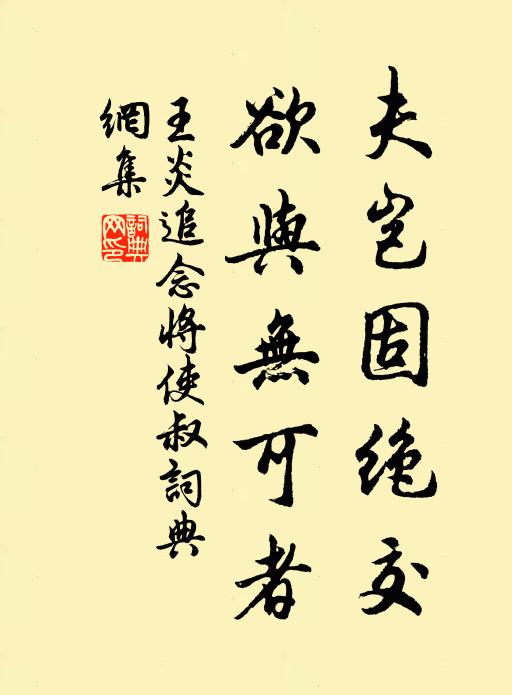 夫岂固絶交
欲與無可者
王炎追念将使叔詞典
網集
詞典
网印